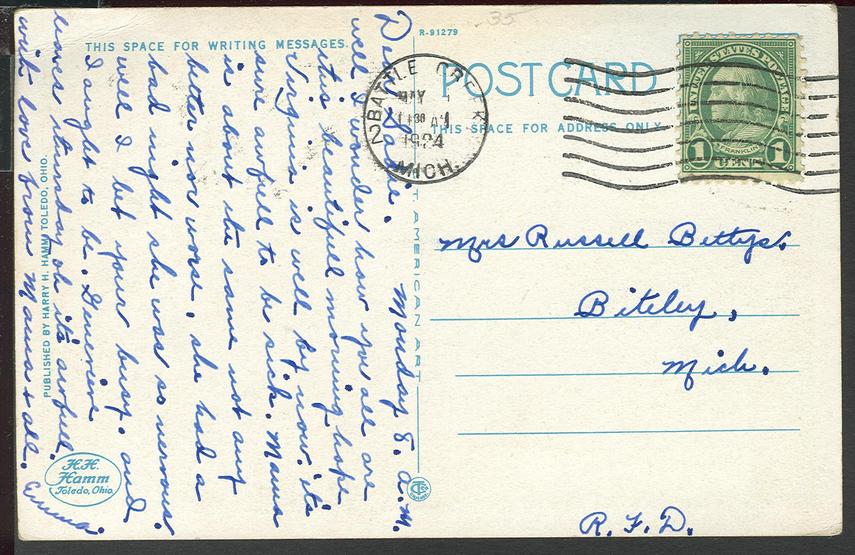 35
R-91279
THIS SPACE FOR WRITING MESSAGES.
POST CARD
THIS SPACE FOR ADDRESS ONLY
BATTLE CREEK
MAY
1130 AM
1924
MICH.
2
FRANKLIN
1 1
Monday 8. a.m.
Dear Sadie.
well I wonder how you all are
this beautifull morning, hope
Virginia is well by now. it's
sure awfull to be sick. Mama
is about the same not any
better nor worse, she had a
bad night she was so nervous.
well I bet your busy. and
I aught to be. Genevieve
leaves thursday oh it's awfull.
with love from Mama & all. Emma.
Mrs Russell Bettys.
Biteley,
Mich.
R. F. D.
AMERICAN ART
PUBLISHED BY HARRY H. HAMM TOLEDO, OHIO.
H.H.
Hamm
Toledo, Ohio.